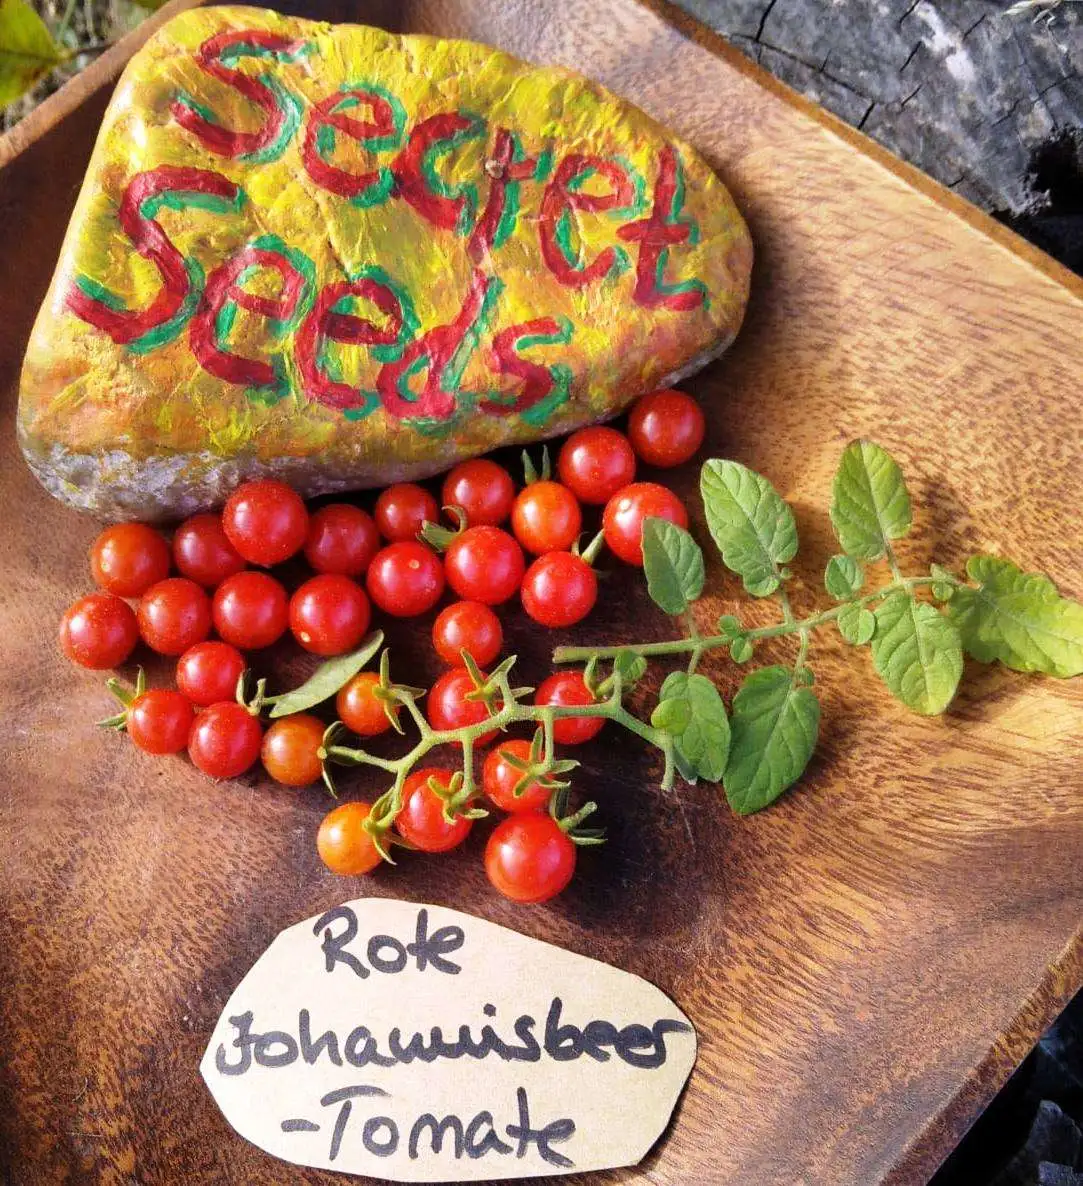 Secret
Seeds
Rote
Johannisbeer
-Tomate